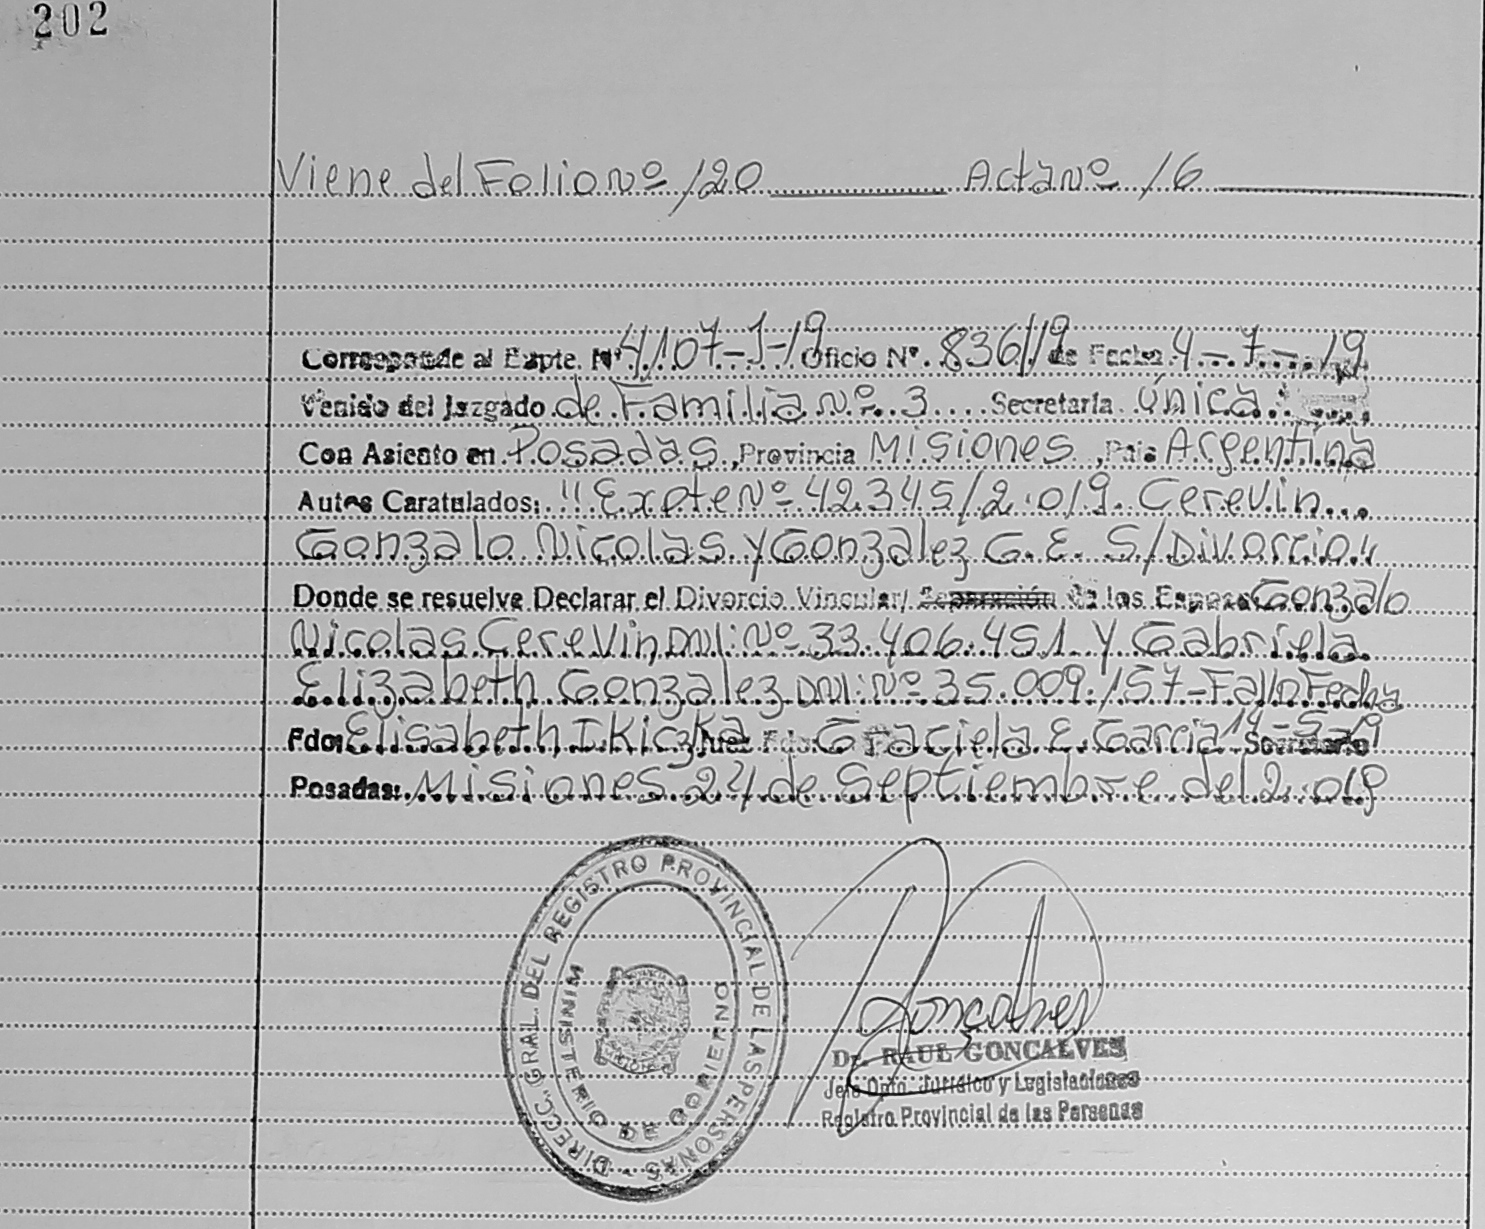 202
Viene del Folio Nº 120 Acta Nº 16
Corresponde al Expte. Nº 4107-J-19 Oficio Nº. 836/19 de Fecha 4-7-19
Venido del Juzgado de Familia Nº. 3 Secretaría Única
Con Asiento en Posadas, Provincia Misiones, País Argentina
Autos Caratulados: "Expte Nº 42.345/2.019. Cerevin
Gonzalo Nicolas y Gonzalez G. E. S/Divorcio"
Donde se resuelve Declarar el Divorcio Vincular/ Separación de los Esposos Gonzalo
Nicolas Cerevin DNI: Nº 33.406.451 y Gabriela
Elizabeth Gonzalez DNI: Nº 35.009.157-Fallo Fecha
14-5-19
Fdo: Elisabeth I. Kiczka Juez Fdo: Graciela E. Garcia Secretario
Posadas: Misiones 24 de Septiembre del 2.019
DIRECC. GRAL. DEL REGISTRO PROVINCIAL DE LAS PERSONAS
MINISTERIO DE GOBIERNO
Goncalves
Dr. RAUL GONCALVES
Jefe Dpto. Jurídico y Legislaciones
Registro Provincial de las Personas